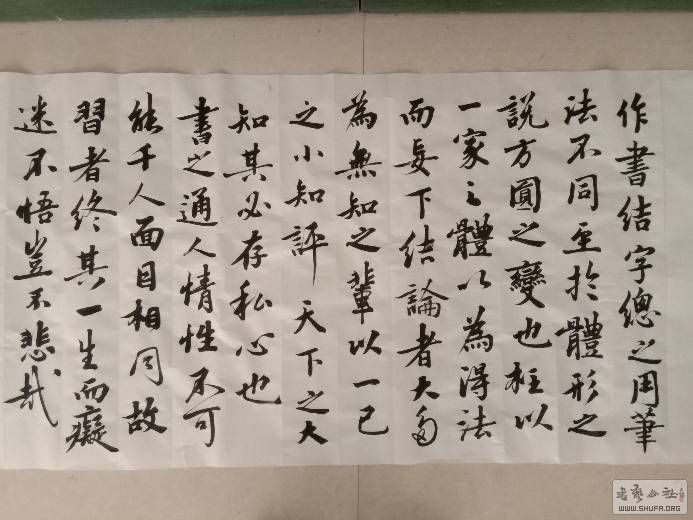 作書結字總之用筆
法不同至於體形之
說方圓之變也枉以
一家之體以為得法
而妄下結論者大多
為無知之輩以一己
之小知評天下之大
知其必存私心也
書之通人情性不可
能千人面目相同故
習者終其一生而癡
迷不悟豈不悲哉
书艺公社
WWW.SHUFA.ORG